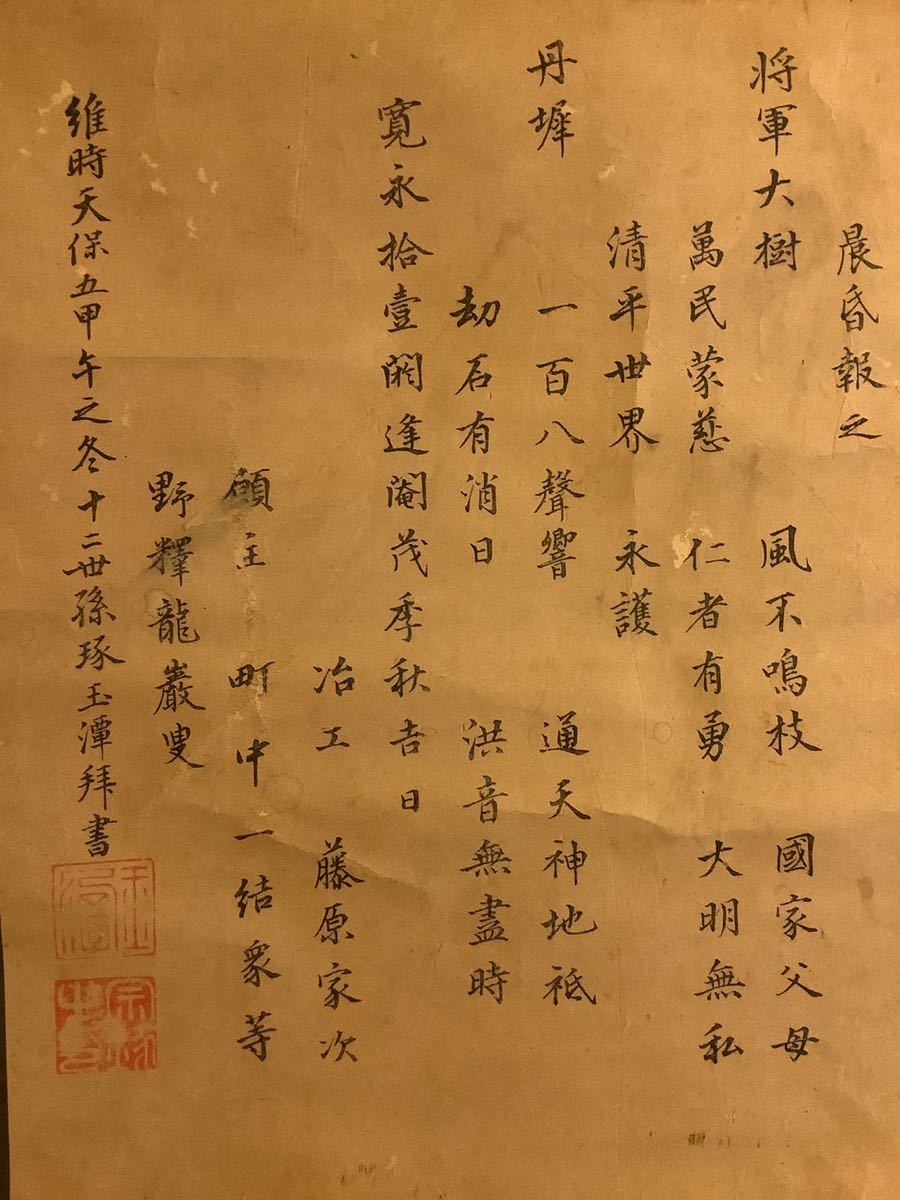 晨昏報之
將軍大樹　風不鳴枝　國家父母
萬民蒙慈　仁者有勇　大明無私
清平世界　永護
丹墀　一百八聲響　通天神地祇
劫石有消日　洪音無盡時
寛永拾壹閼逢閹茂季秋吉日
冶工　藤原家次
願主　町中一結衆等
野釋龍巖叟
維時天保五甲午之冬十二世孫琢玉潭拜書